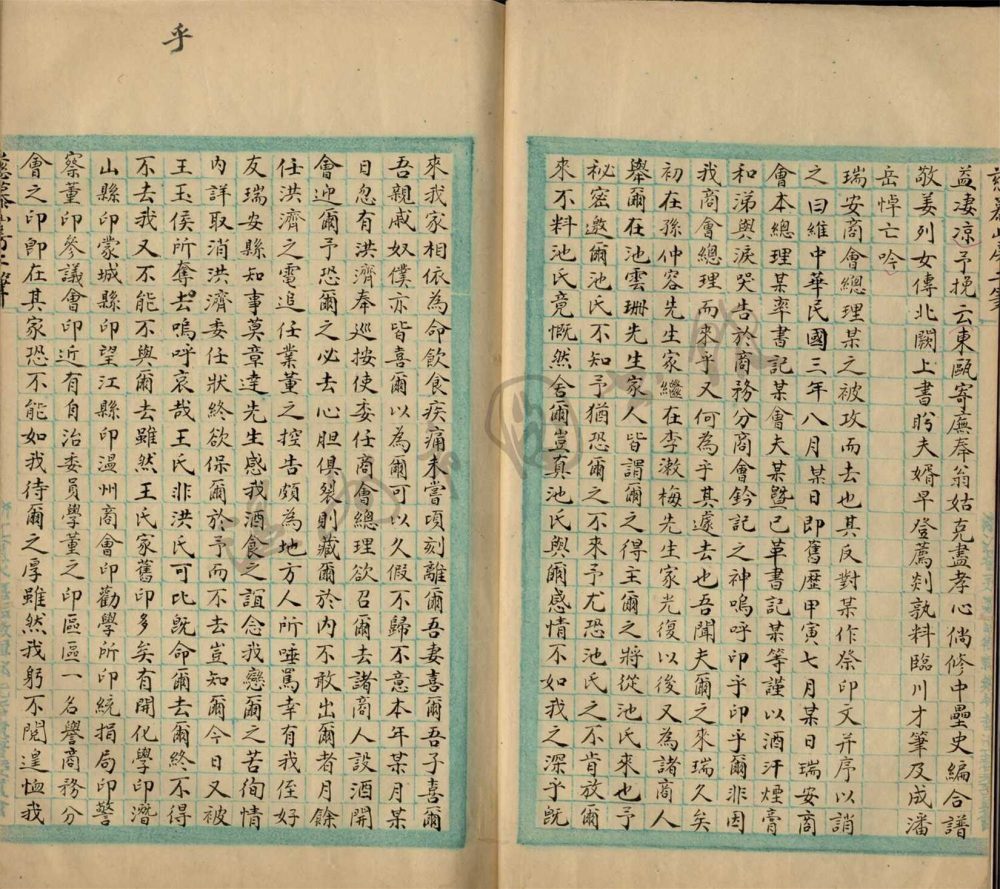 益凄凉予挽云東甌寄廡奉翁姑克盡孝心倘修中壘史編合譜
敬姜列女傳北闕上書盻夫婿早登薦剡孰料臨川才筆及成潘
岳悼亡吟
瑞安商會總理某之被攻而去也其反對某作祭印文并序以誚
之曰維中華民國三年八月某日即舊歷甲寅七月某日瑞安商
會本總理某率書記某會夫某暨已革書記某等謹以酒汗煙膏
和涕與淚哭告於商務分商會鈐記之神嗚呼印乎印乎爾非因
我商會總理而來乎又何為乎其遽去也吾聞夫爾之來瑞久矣
初在孫仲容先生家繼在李漱梅先生家光復以後又為諸商人
舉爾在池雲珊先生家人皆謂爾之得主爾之將從池氏來也予
秘密邀爾池氏不知予猶恐爾之不來予尤恐池氏之不肯放爾
來不料池氏竟慨然舍爾豈真池氏與爾感情不如我之深乎既
乎
來我家相依為命飲食疾痛未嘗頃刻離爾吾妻喜爾吾子喜爾
吾親戚奴僕亦皆喜爾以為爾可以久假不歸不意本年某月某
日忽有洪濟奉巡按使委任商會總理欲召爾去諸商人設酒開
會迎爾予恐爾之必去心胆俱裂則藏爾於內不敢出爾者月餘
任洪濟之電追任業董之控告頗為地方人所唾罵幸有我侄好
友瑞安縣知事莫章達先生感我酒食之誼念我戀爾之苦徇情
內詳取消洪濟委任狀終欲保爾於予而不去豈知爾今日又被
王玉侯所奪去嗚呼哀哉王氏非洪氏可比既命爾去爾終不得
不去我又不能不與爾去雖然王氏家舊印多矣有開化學印濳
山縣印蒙城縣印望江縣印溫州商會印勸學所印統捐局印警
察董印參議會印近有自治委員學董之印區區一名譽商務分
會之印即在其家恐不能如我待爾之厚雖然我躬不閱遑恤我